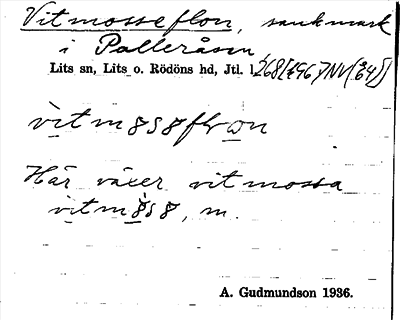 Vitmosseflon, sankmark
i Palleråsen,
Lits sn, Lits o. Rödöns hd, Jtl. l.
vìtm8s8flωn
Här växer vitmossa
vìtm8̀s8, m.
A. Gudmundson 1936.